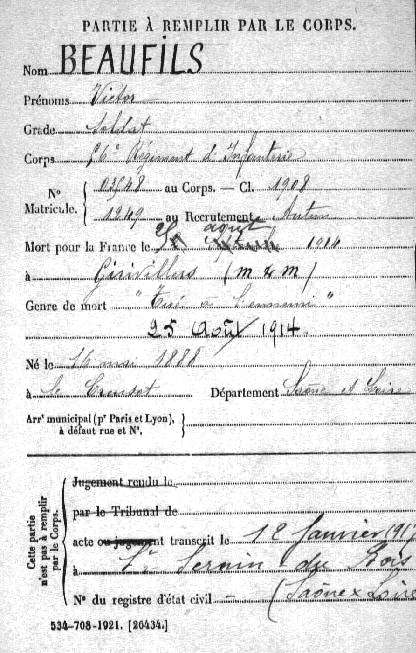 PARTIE À REMPLIR PAR LE CORPS.
Nom BEAUFILS
Prénoms Victor
Grade Soldat
Corps Régiment d'Infanterie
N° Matricule. { au Corps. — Cl. 1908
1249 au Recrutement Autun
Mort pour la France le août 1914
à (M & M)
Genre de mort "Tué à l'ennemi"
25 Août 1914.
Né le 16 mai 1888
à le Creusot Département Saône et Loire
Arrt municipal (pr Paris et Lyon), à défaut rue et N°. }
Cette partie n'est pas à remplir par le Corps.
Jugement rendu le
par le Tribunal de
acte ou jugement transcrit le 12 Janvier
à St Sernin du Bois
N° du registre d'état civil (Saône & Loire
534-708-1921. [26434.]